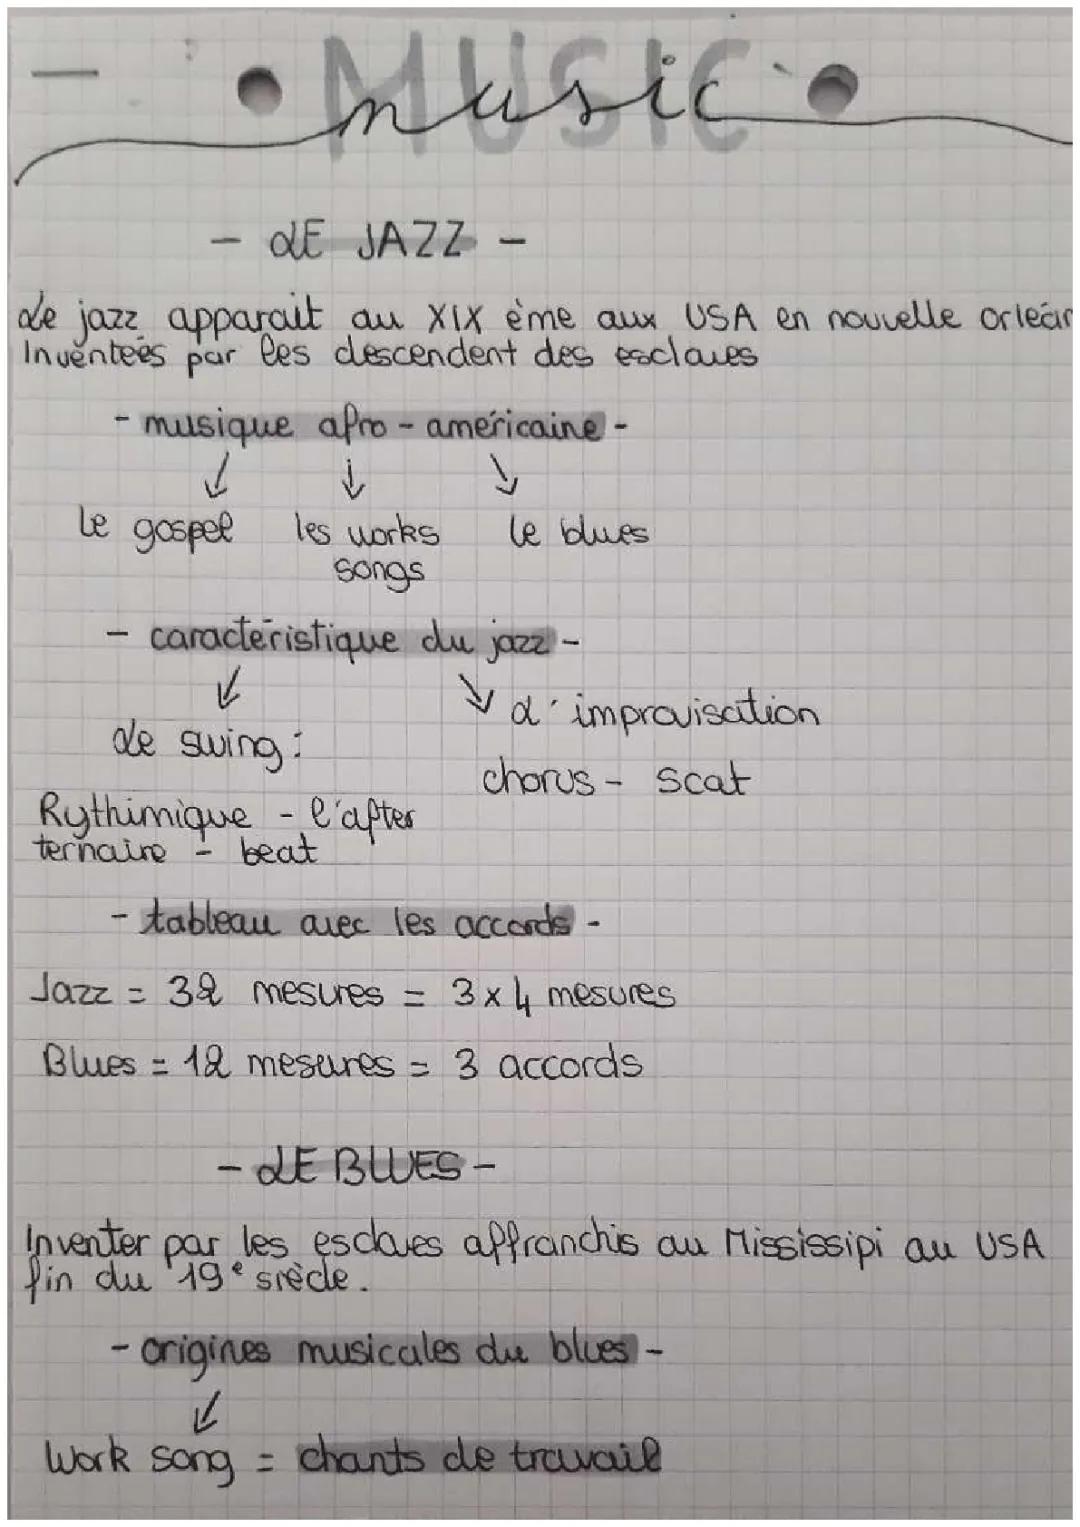 MUSIC
music
- LE JAZZ -
Le jazz apparait au XIX ème aux USA en nouvelle orléan
Inventées par les descendent des esclaves
- musique afro-américaine -
le gospel les works le blues
songs
- caractéristique du jazz -
L'improvisation
Le swing :
chorus - scat
Rythimique - l'after
ternaire - beat
- tableau avec les accords -
Jazz = 32 mesures = 3 x 4 mesures
Blues = 12 meseures = 3 accords
- LE BLUES -
Inventer par les esclaves affranchis au Mississipi au USA
fin du 19e siècle.
- origines musicales du blues -
Work song = chants de travail